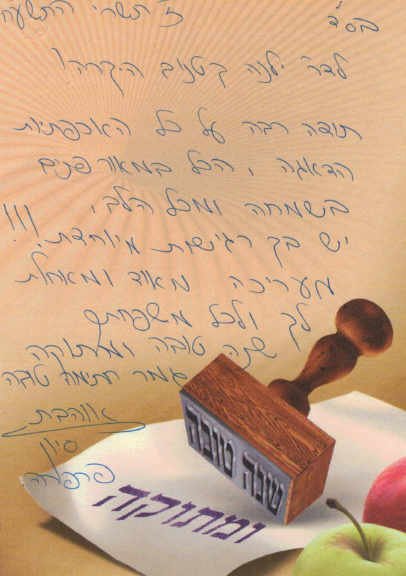 בס"ד
ז' תשרי התשע"ח
לדר' ילנה קיטנוב היקרה!
תודה רבה על כל האכפתיות
הדאגה, הכל במאור פנים
בשמחה ומכל הלב,
יש בך רגישות מיוחדת!!!
מעריכה מאוד ומאחלת
לך ולכל משפחתך
שנה טובה ומתוקה
גמר חתימה טובה
אוהבת
סיון
שנה טובה
ומתוקה